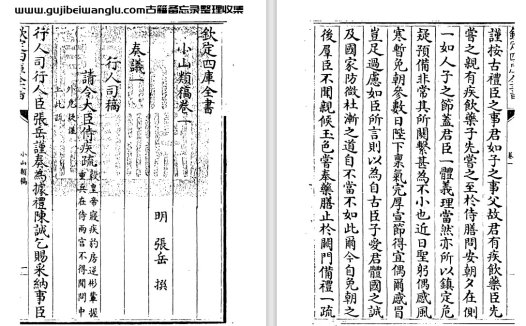 www.gujibeiwanglu.com古籍备忘录整理收集
欽定四庫全書
小山類稿卷一
明 張岳 撰
奏議一
行人司稿
請令大臣侍疾疏
毅皇帝寢疾豹房逆彬輩握
重兵在侍兩宮不得聞問中
外危疑議
上此疏
行人司行人臣張岳謹奏為據禮陳誠乞賜采納事臣
欽定四庫全書
小山類稿
一
謹按古禮臣之事君如子之事父故君有疾飲藥臣先
嘗之親有疾飲藥子先嘗之至於侍膳問安朝夕在側
一如人子之節蓋君臣一體義理當然亦所以鎮定危
疑預備非常其所關繫甚為不小也近日聖躬偶感風
寒暫免朝參數日陛下稟氣完厚宣節得宜偶爾感冒
豈足過慮如臣所言則以為自古臣子愛君體國之誠
及國家防微杜漸之道自不當不如此爾今自免朝之
後羣臣不聞親候玉色嘗奉藥膳止於闕門備禮一疏
卷一